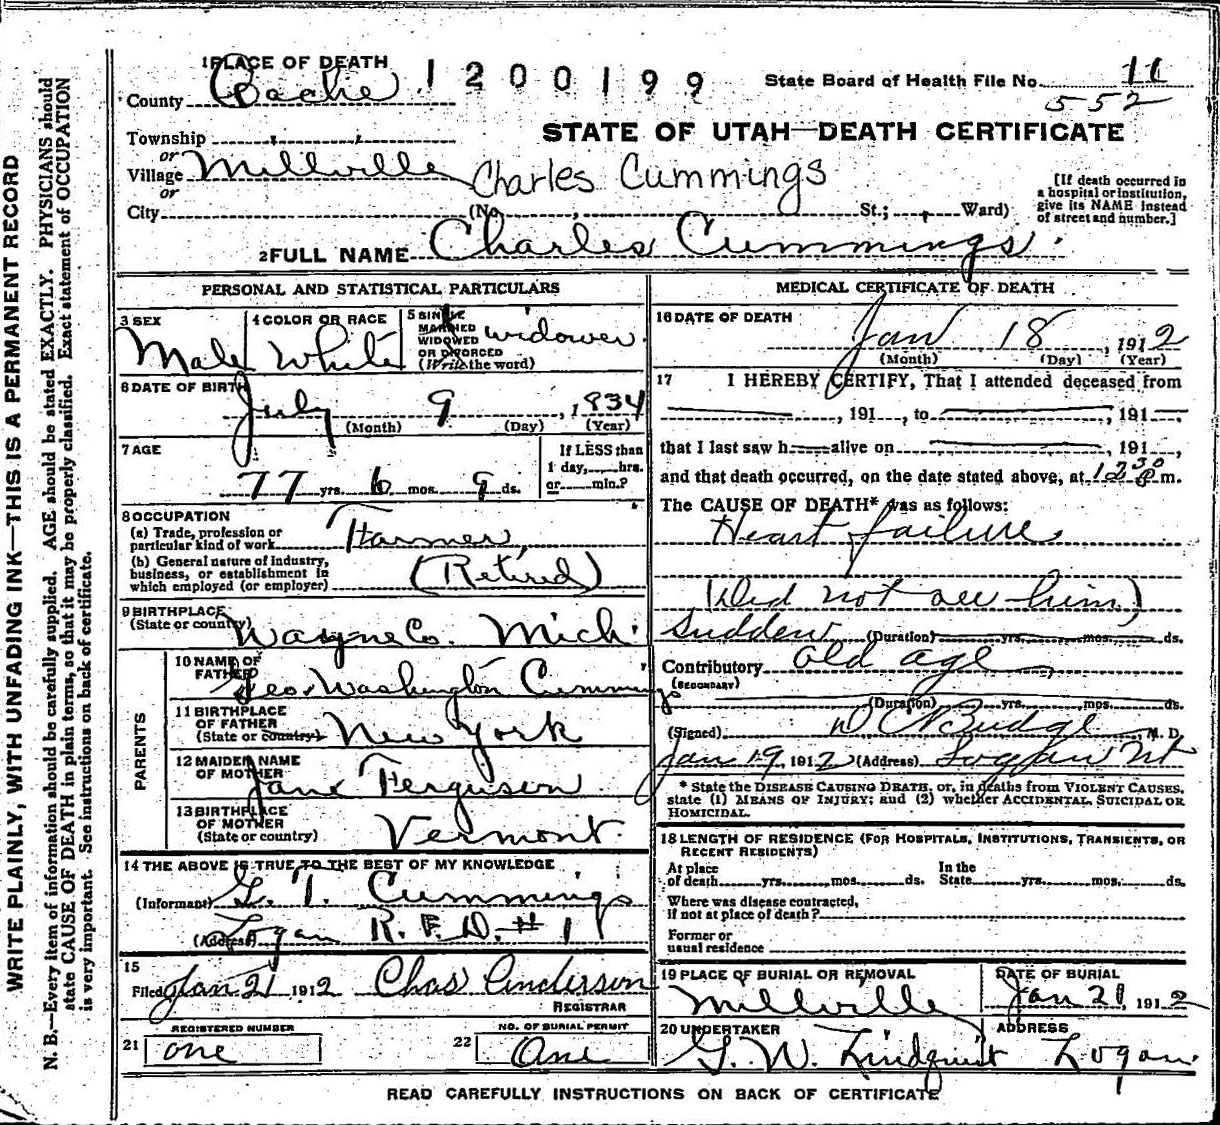 1 PLACE OF DEATH
1200199
State Board of Health File No. 11
County Cache
552
STATE OF UTAH—DEATH CERTIFICATE
Township
or
Village Millville
Charles Cummings
or
City (No. St.; Ward)
[If death occurred in
a hospital or institution,
give its NAME instead
of street and number.]
2 FULL NAME Charles Cummings.
PERSONAL AND STATISTICAL PARTICULARS
3 SEX
Male
4 COLOR OR RACE
White
5 SINGLE
MARRIED
WIDOWED
OR DIVORCED
(Write the word)
widower.
6 DATE OF BIRTH
July 9, 1834
(Month) (Day) (Year)
7 AGE
77 yrs. 6 mos. 9 ds.
If LESS than
1 day, hrs.
or min.?
8 OCCUPATION
(a) Trade, profession or
particular kind of work Farmer,
(b) General nature of industry,
business, or establishment in
which employed (or employer) (Retired)
9 BIRTHPLACE
(State or country) Wayne Co. Mich.
PARENTS
10 NAME OF
FATHER Geo. Washington Cummings
11 BIRTHPLACE
OF FATHER
(State or country) New York
12 MAIDEN NAME
OF MOTHER Jane Ferguson
13 BIRTHPLACE
OF MOTHER
(State or country) Vermont.
14 THE ABOVE IS TRUE TO THE BEST OF MY KNOWLEDGE
(Informant) G. T. Cummings
(Address) Logan R.F.D. # 1
15
Filed Jan 21 1912 Chas Anderson
REGISTRAR
REGISTERED NUMBER
21 one
NO. OF BURIAL PERMIT
22 One
MEDICAL CERTIFICATE OF DEATH
16 DATE OF DEATH
Jan 18, 1912
(Month) (Day) (Year)
17 I HEREBY CERTIFY, That I attended deceased from
, 191 , to , 191
that I last saw h alive on , 191 ,
and that death occurred, on the date stated above, at 12 30 P m.
The CAUSE OF DEATH* was as follows:
Heart failure
(Did not see him)
Sudden (Duration) yrs. mos. ds.
Contributory old age
(SECONDARY)
(Duration) yrs. mos. ds.
(Signed) D C Budge, M. D.
Jan 19, 1912 (Address) Logan Ut
* State the DISEASE CAUSING DEATH, or, in deaths from VIOLENT CAUSES,
state (1) MEANS OF INJURY; and (2) whether ACCIDENTAL, SUICIDAL OR
HOMICIDAL.
18 LENGTH OF RESIDENCE (FOR HOSPITALS, INSTITUTIONS, TRANSIENTS, OR
RECENT RESIDENTS)
At place
of death yrs. mos. ds.
In the
State yrs. mos. ds.
Where was disease contracted,
if not at place of death?
Former or
usual residence
19 PLACE OF BURIAL OR REMOVAL
Millville
DATE OF BURIAL
Jan 21, 1912
20 UNDERTAKER
G. W. Lindquist
ADDRESS
Logan.
READ CAREFULLY INSTRUCTIONS ON BACK OF CERTIFICATE
WRITE PLAINLY, WITH UNFADING INK—THIS IS A PERMANENT RECORD
N. B.—Every item of information should be carefully supplied. AGE should be stated EXACTLY. PHYSICIANS should
state CAUSE OF DEATH in plain terms, so that it may be properly classified. Exact statement of OCCUPATION
is very important. See instructions on back of certificate.